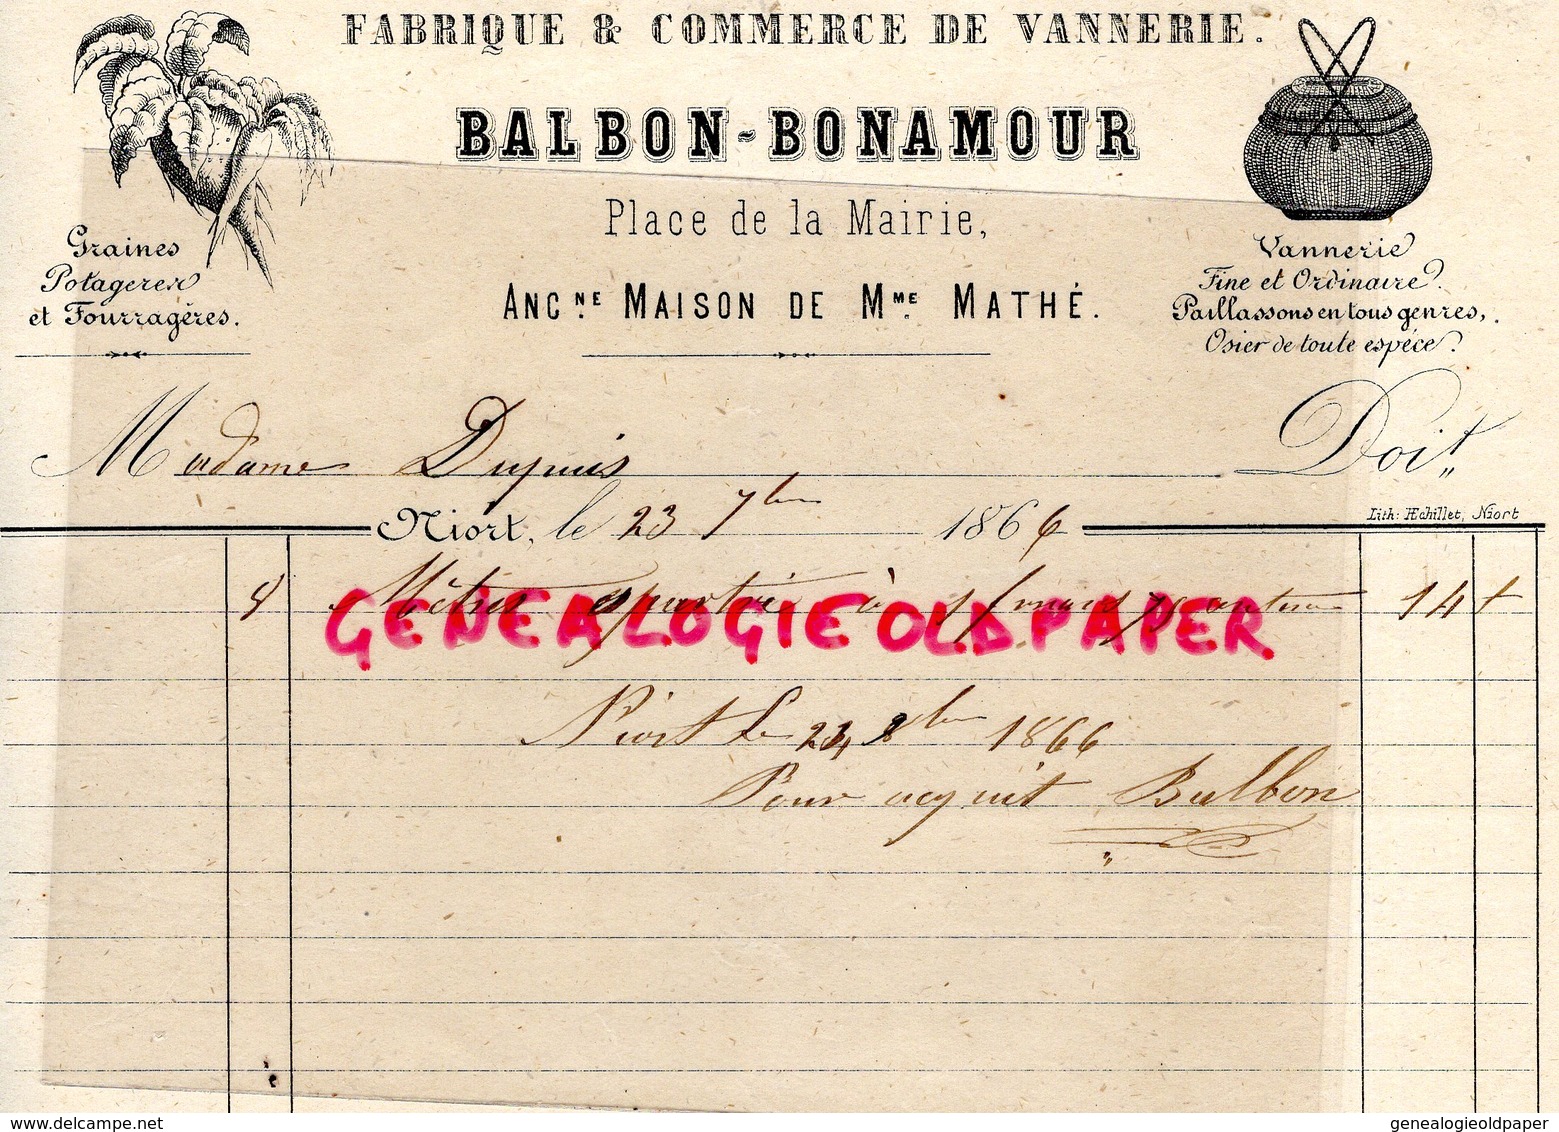 FABRIQUE & COMMERCE DE VANNERIE.
BALBON-BONAMOUR
Place de la Mairie,
ANC.NE MAISON DE M.ME MATHÉ.
Graines
Potageres
et Fourragères.
Vannerie
Fine et Ordinaire.
Paillassons en tous genres,
Osier de toute espèce.
Madame Dupuis Doit
Niort, le 23 7bre 1866
Lith: Echillet, Niort
8 Mètres sparterie à 1f mais 75 centimes 14 +
GENEALOGIE OLD PAPER
Niort le 24 8bre 1866
Pour acquit Balbon
delcampe.net
genealogieoldpaper